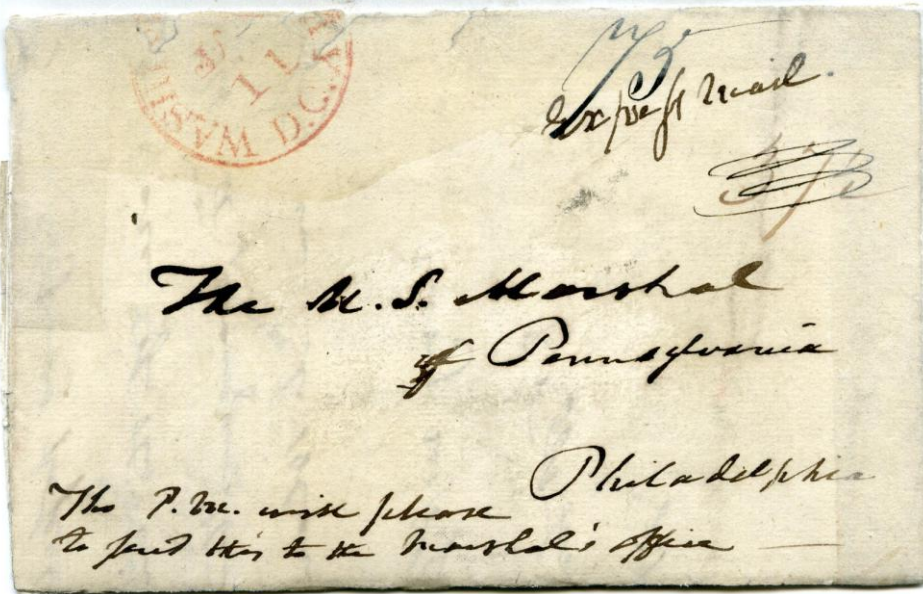 WASH D.C.
11
75
Express Mail.
37½
The U. S. Marshal
of Pennsylvania
Philadelphia
The P.M. will please
to send this to the Marshal's office